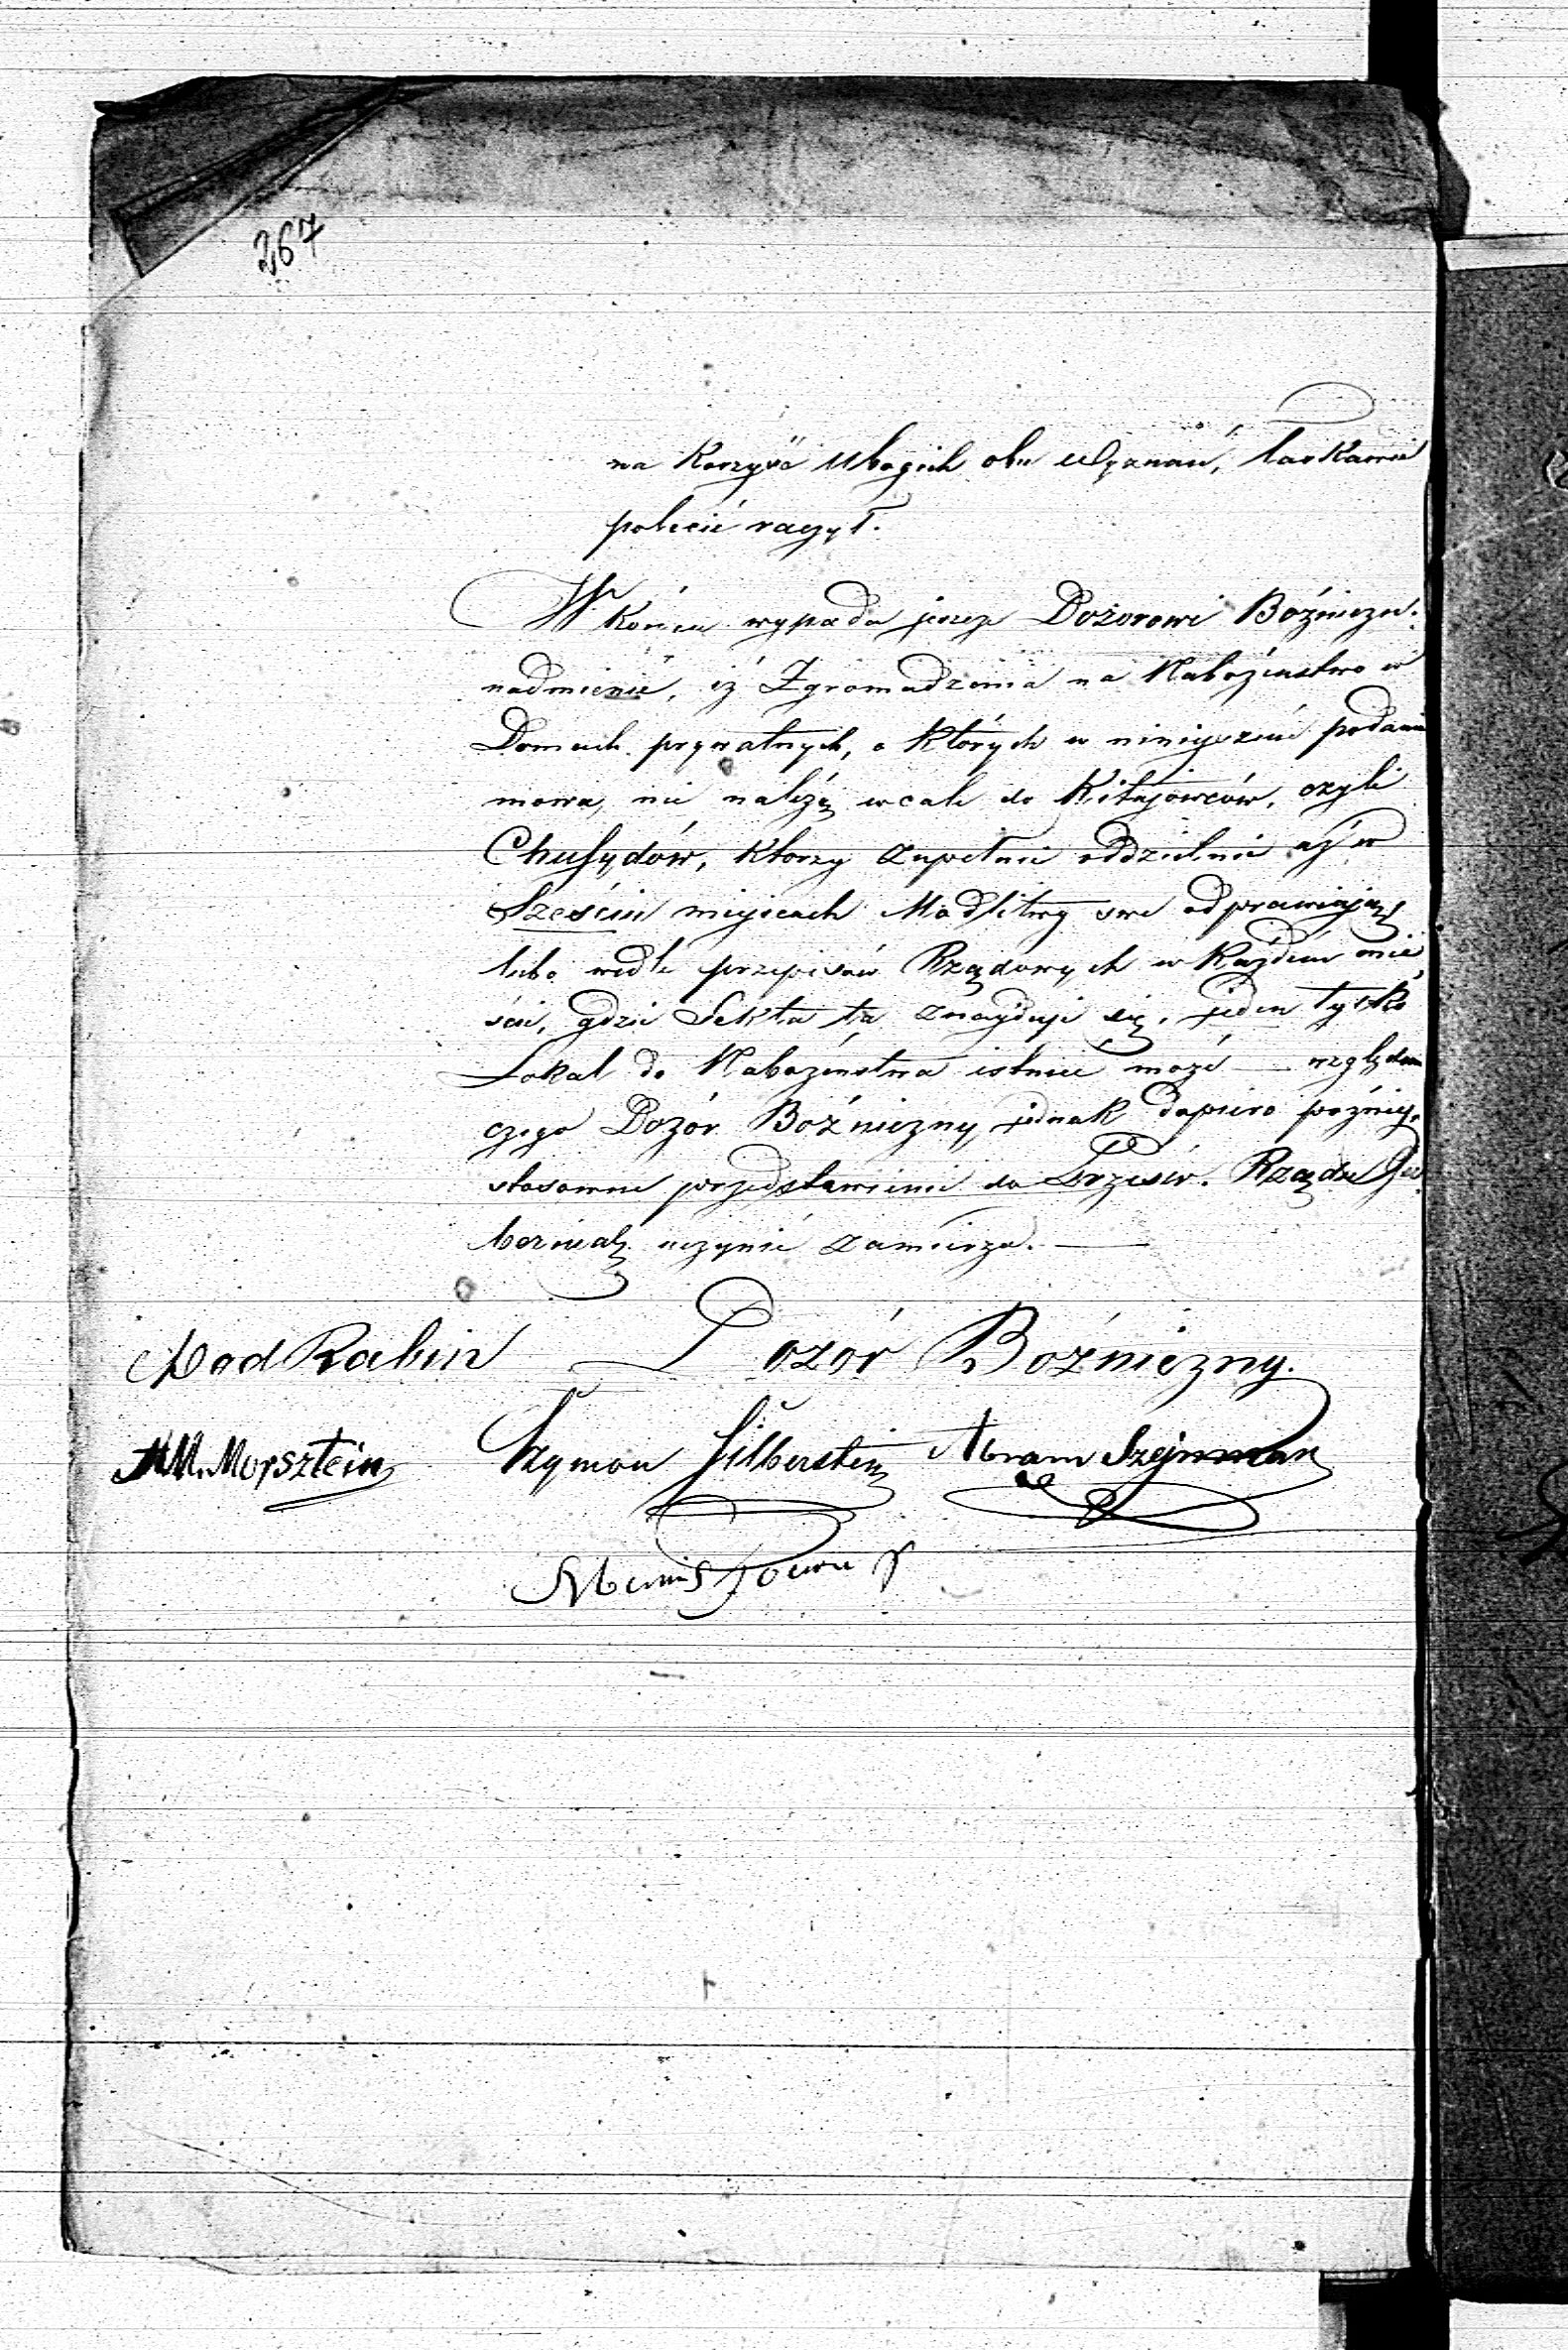 267
na Korzyść Ubogich obu Wyznań, łaskawie
polecić raczył.
W końcu wypada jeszcze Dozorowi Bóźniczn:
nadmienić, iż Zgromadzenia na Nabożeństwo w
Domach prywatnych, o których w niniejszém podaniu
mowa, nie należą wcale do Kitajowców, czyli
Chusydów, którzy zupełnie oddzielnie aż w
Sześciu miejscach Modlitwy swe odprawiają
lubo wedle przepisów Rządowych w każdém mie
ście, gdzie Sekta ta znajduje się, jeden tylko
Lokal do Nabożeństwa istnieć może — względem
czego Dozór Bóźniczny jednak dopiero później
stosowne przedstawienie do Prześw. Rządu Gu
bernial. uczynić zamierza. —
Pod Rabin Dozór Bóźniczny.
M. Morsztein Szymon Silberstein Abram Szejnman